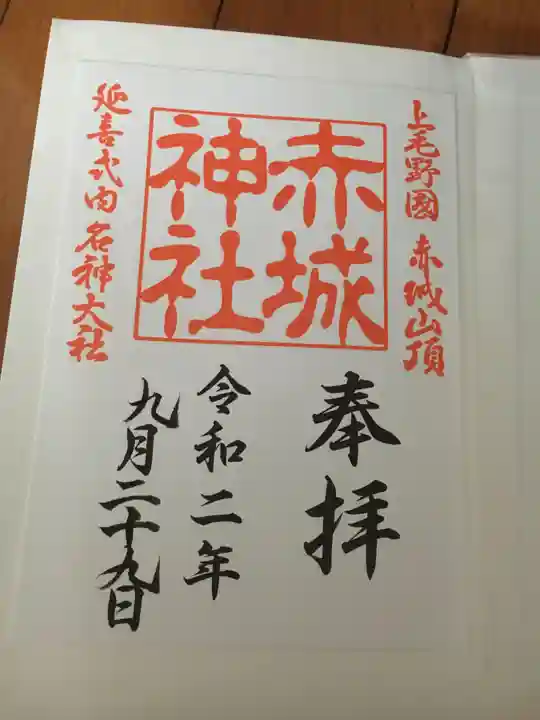 上毛野國 赤城山頂
赤城
神社
延喜式内名神大社
奉拝
令和二年
九月二十九日